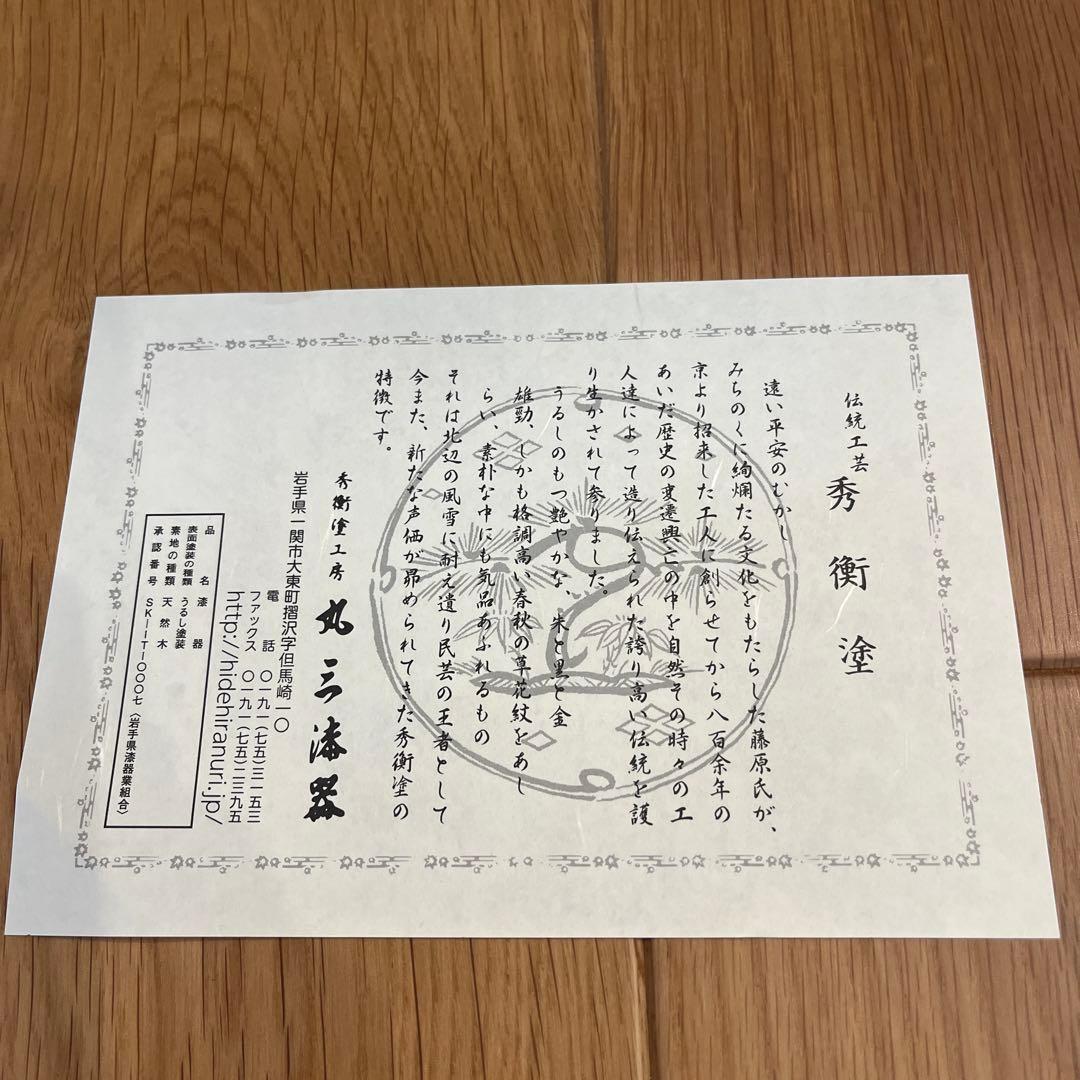 伝統工芸 秀衡塗
遠い平安のむかし
みちのくに絢爛たる文化をもたらした藤原氏が、
京より招来した工人に創らせてから八百余年の
あいだ歴史の変遷興亡の中を自然その時々の工
人達によって造り伝えられた誇り高い伝統を護
り生かされて参りました。
うるしのもつ艶やかな、朱と黒と金
雄勁、しかも格調高い春秋の草花紋をあし
らい、素朴な中にも気品あふれるもの
それは北辺の風雪に耐え遺り民芸の王者として
今また、新たな声価が昴められてきた秀衡塗の
特徴です。
秀衡塗工房 丸三漆器
岩手県一関市大東町摺沢字但馬崎一〇
電話 〇一九一(七五)三一五三
ファックス 〇一九一(七五)二三九五
http://hidehiranuri.jp/
品名 漆器
表面塗装の種類 うるし塗装
素地の種類 天然木
承認番号 SK―IT―〇〇〇七〈岩手県漆器業組合〉